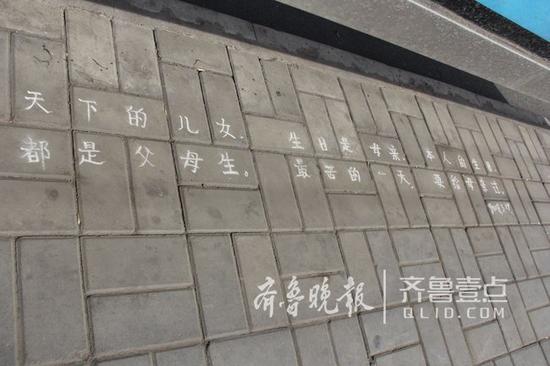 天下的儿女，
都是父母生。
生日是母亲
最苦的一天，
本人的生日
要给母亲过。
齐鲁晚报
齐鲁壹点
QLID.COM